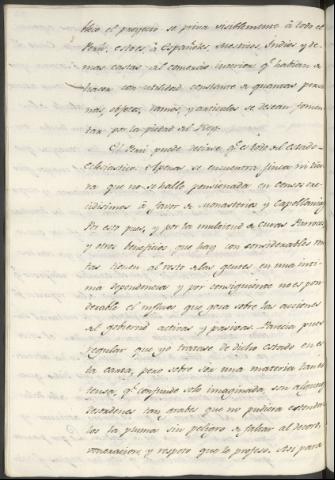 tivo el proyecto se priva visiblemente á todo el
Perú, esto es, á Españoles, Mestizos, Indios y de
mas castas al comercio interior qᵉ habian de
hacer con utilidad constante á quantas perso
nas, sopas, ramos, y articulos se desean fomen
tar por la piedad del Rey.
El Perú puede decirse qᵉ es todo del estado
Eclesiastico. Apenas se encuentra finca urba
na que no se halle pensionada en censos cre
cidisimos á favor de Monasterios y Capellanias
Por esto pues, y por la multitud de Curas Parrocos
y otros beneficios que hay con considerables ren
tas tienen al resto de las gentes en una inti
ma dependencia y por consiguiente no es pon
derable el influxo que goza sobre las acciones
del gobierno activas y pasivas. Parecia pues
regular que yo tratase de dicho estado en es
ta carta, pero sobre ser una materia tan ex
tensa, qᵉ confundo solo imaginada, son algunos
desordenes tan graves que no pudiera estender
los la pluma sin peligro de faltar al decoro
veneracion, y respeto que le profeso. Asi para